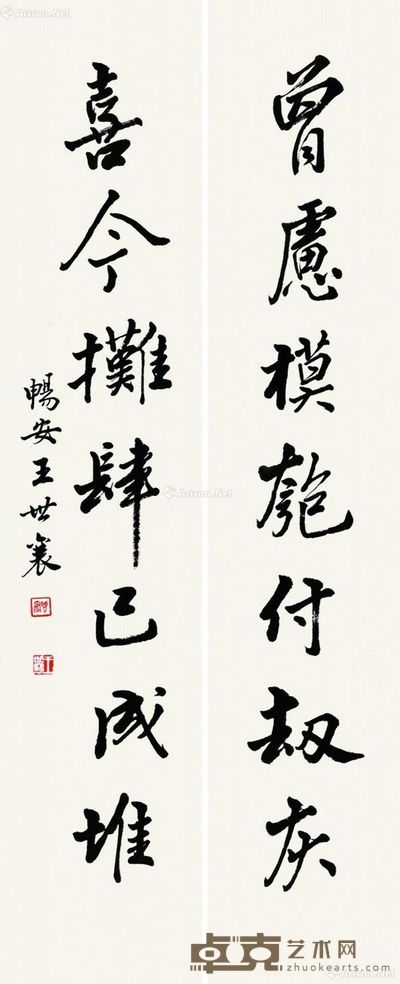 曾慮模匏付劫灰
喜今攤肆已成堆
暢安王世襄
Artron.Net
Artron.Net
Artron.Net
Artron.Net
卓克艺术网
zhuokearts.com